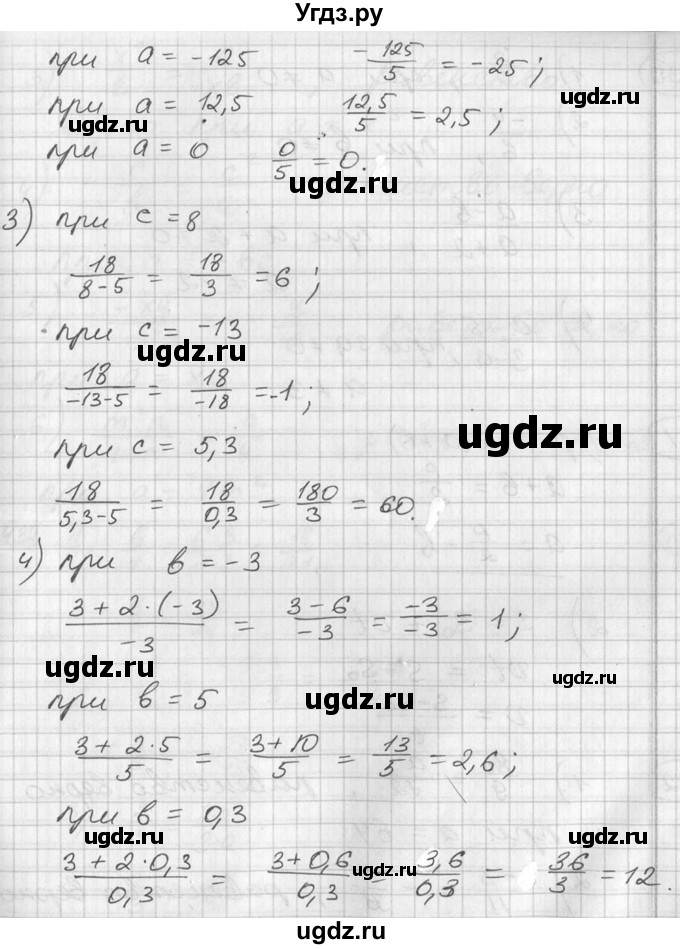 Угдз.ру
при a = -125 -125/5 = -25;
при a = 12,5 12,5/5 = 2,5;
ugdz.ru ugdz.ru
при a = 0 0/5 = 0.
ugdz.ru
3) при c = 8
18/(8-5) = 18/3 = 6;
при c = -13
ugdz.ru
18/(-13-5) = 18/-18 = -1;
ugdz.ru
при c = 5,3
18/(5,3-5) = 18/0,3 = 180/3 = 60.
4) при в = -3
(3+2·(-3))/-3 = (3-6)/-3 = -3/-3 = 1;
ugdz.ru ugdz.ru
при в = 5
(3+2·5)/5 = (3+10)/5 = 13/5 = 2,6;
при в = 0,3
ugdz.ru ugdz.ru
(3+2·0,3)/0,3 = (3+0,6)/0,3 = 3,6/0,3 = 36/3 = 12.
ugdz.ru
ugdz.ru